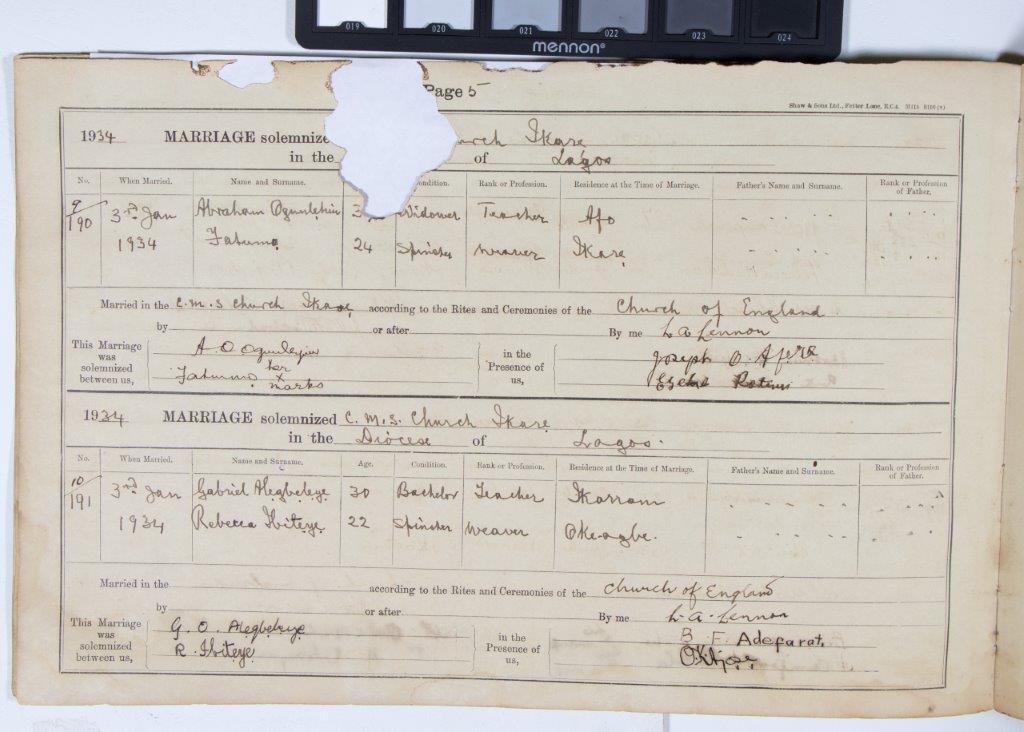 019 020 021 022 023 024
mennon®
Page 5
Shaw & Sons Ltd., Fetter Lane, E.C.4.
1934 MARRIAGE solemnized Church Ikare
in the of Lagos
No. When Married. Name and Surname. Condition. Rank or Profession. Residence at the Time of Marriage. Father's Name and Surname. Rank or Profession of Father.
9/190 3rd Jan Abraham Ogunlehin Widower Teacher Afo
1934 Fatuma 24 Spinster Weaver Ikare
Married in the C.M.S Church Ikare according to the Rites and Ceremonies of the Church of England
by or after By me L A Lennon
This Marriage was solemnized between us, in the Presence of us,
A. O Ogunleyin Joseph O. Afere
Fatumo her x marks
1934 MARRIAGE solemnized C.M.S. Church Ikare
in the Diocese of Lagos.
No. When Married. Name and Surname. Age. Condition. Rank or Profession. Residence at the Time of Marriage. Father's Name and Surname. Rank or Profession of Father.
10/191 3rd Jan Gabriel Alegbeleye 30 Bachelor Teacher Ikarram
1934 Rebecca Ibiteye 22 Spinster Weaver Oke-agbe.
Married in the according to the Rites and Ceremonies of the Church of England
by or after By me L. A. Lennon
This Marriage was solemnized between us, in the Presence of us,
G. O. Alegbeleye B. F. Adefarati
R. Ibiteye O.K. Ajose